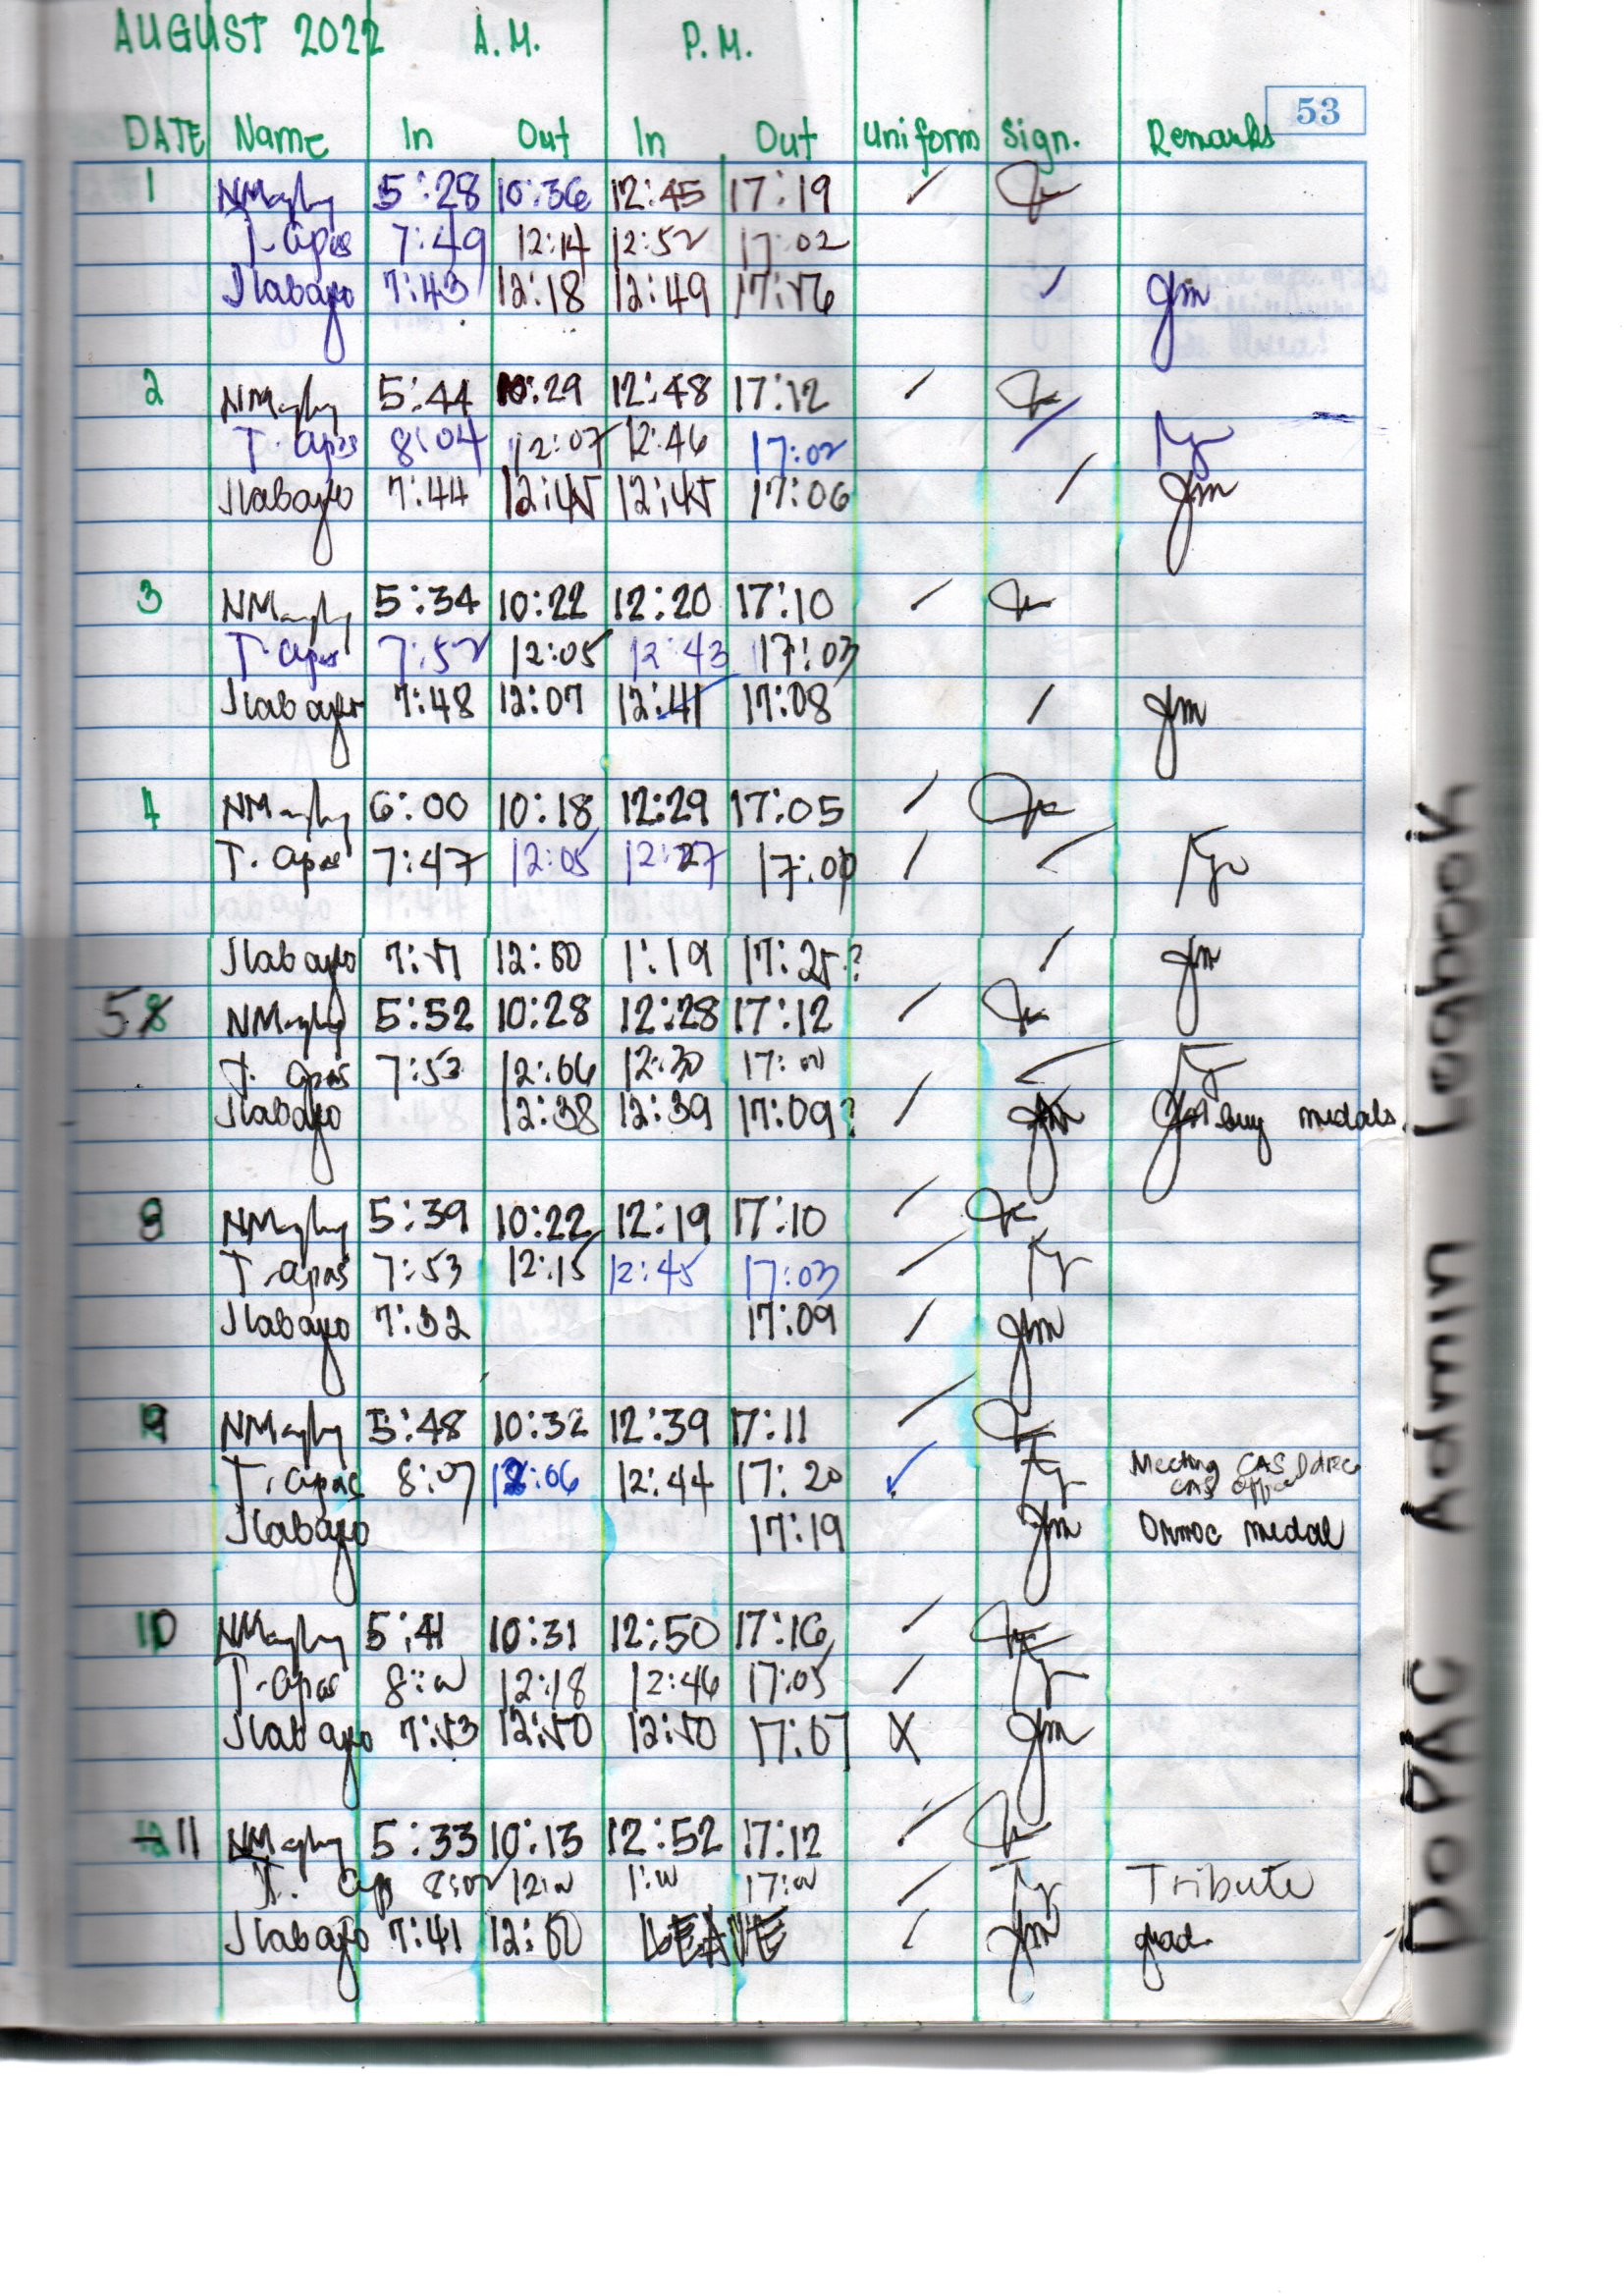 AUGUST 2022 A.M. P.M.
53
DATE Name In Out In Out Uniform Sign. Remarks
1 5:28 10:36 12:45 17:19
T. Apas 7:49 12:14 12:52 17:02
Jlabayo 7:43 12:18 12:49
2 5:44 10:29 12:48 17:12
T. Apas 8:04 12:07 12:46 17:02
Jlabayo 7:44 12:45 12:45 17:06
3 5:34 10:22 12:20 17:10
T. Apas 7:52 12:05 12:43 17:03
Jlabayo 7:48 12:07 12:41 17:08
4 6:00 10:18 12:29 17:05
T. Apas 7:47 12:05 12:27 17:00
Jlabayo 7:51 12:00 1:19 17:25?
5 5:52 10:28 12:28 17:12
T. Apas 7:53 12:06 12:30 17:00
Jlabayo 12:38 12:39 17:09? buy medals.
8 5:39 10:22 12:19 17:10
T. Apas 7:53 12:15 12:45 17:03
Jlabayo 7:32 17:09
9 5:48 10:32 12:39 17:11
T. Apas 8:07 12:06 12:44 17:20 Meeting CAS
CAS office
Jlabayo 17:19 Ormoc medal
10 5:41 10:31 12:50 17:16
T. Apas 8:00 12:18 12:46 17:05
Jlabayo 7:53 12:50 12:50 17:07 X
11 5:33 10:13 12:52 17:12
T. Apas 8:02 12:00 1:00 17:00 Tribute
Jlabayo 7:41 12:00 LEAVE grad.
DOPAC Admin Logbook